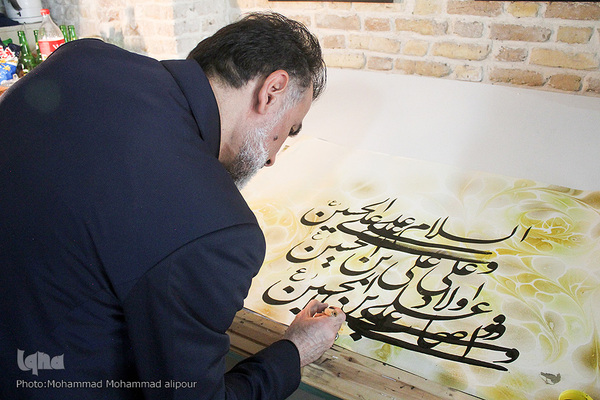 السلام علی الحسین ع
و علی علی بن الحسین ع
و علی اولاد الحسین ع
و علی اصحاب
iqna
Photo:Mohammad Mohammad alipour